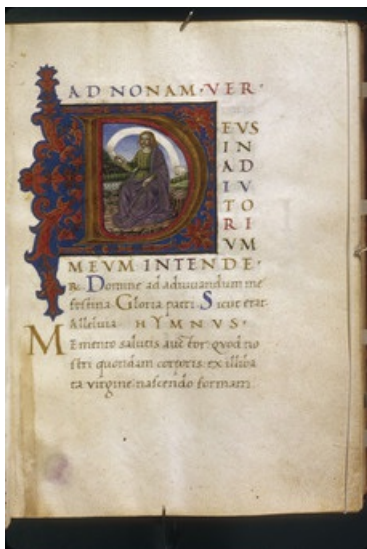 AD NONAM · VER ·
DEVS
IN
AD
IV
TO
RI
VM
MEVM · INTENDE ·
R. Domine ad adiuuandum me
festina. Gloria patri. Sicut erat.
Alleluia. HYMNVS ·
Memento salutis auctor: quod no
stri quondam corporis: ex illiba
ta virgine: nascendo formam